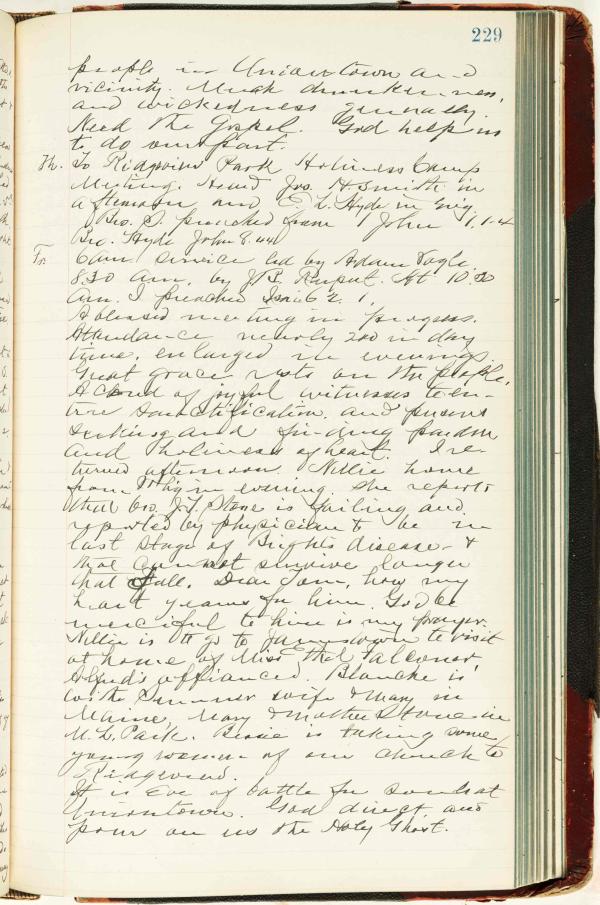 229
people in Uniontown and
vicinity. Much drunkenness,
and wickedness generally.
Need the Gospel. God help us
to do our part.
Th. To Ridgview Park Holiness Camp
Meeting. Heard Jos. H. Smith in
afternoon and E. L. Hyde in evg.
Bro. S. preached from 1 John 1, 1-4
Bro. Hyde John 8:44
Fr. 6 am service led by Adam
8.30 am. by J. B. At 10.30
am. I preached Isai 62. 1.
A blessed meeting in progress.
Attendance nearly 200 in day
time, enlarged in evenings.
Great grace rests on the people.
A crowd of joyful witnesses to en-
tire sanctification and persons
seeking and finding pardon
and holiness of heart. I re-
turned afternoon. Nellie home
from in evening. She reports
that bro. J. T. Stone is failing and
reported by physician to be in
last stage of Bright's disease - &
that cannot survive longer
that Fall. Dear Tom, how my
heart yearns for him. God be
merciful to him is my prayer.
Nellie is to go to Jamestown to visit
at home of Miss Ethel Falconer
Alfred's affianced. Blanche is
with Summer wife & Mary in
Maine, Mary & mother Stone in
M. L. Park. Bessie is taking some
young women of our church to
Ridgeview.
It is Eve of battle for souls at
Uniontown. God direct, and
pour on us the Holy Ghost.